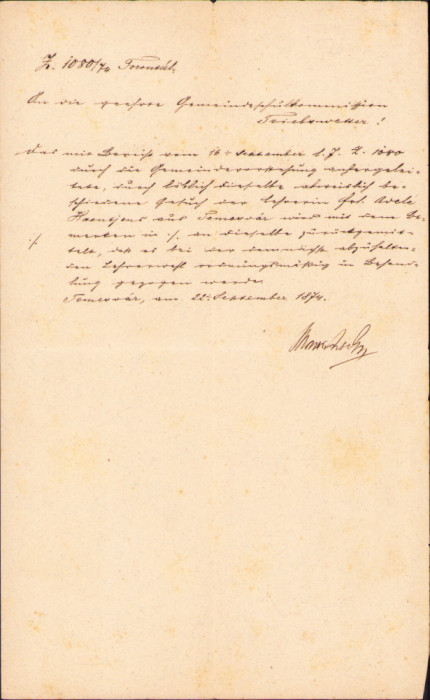 Z. 1080/74 Torontál.
An die geehrte Gemeindeschulkommission
Triebswetter!
Das mit Bericht vom 16t September l. J. Z. 1080
durch die Gemeindevorstehung anhergelei-
tete, durch löblich dieselbe abweislich be-
schiedene Gesuch der Lehrerin Frl. Adele
aus Temesvár wird mit dem Be-
merken in ·/. an dieselbe zurückgemit-
·/. telt, daß es bei der demnächst abzuhalten-
den Lehrerwahl ordnungsmäßig in Behand-
lung gezogen werde.
Temesvár, am 22t September 1874.